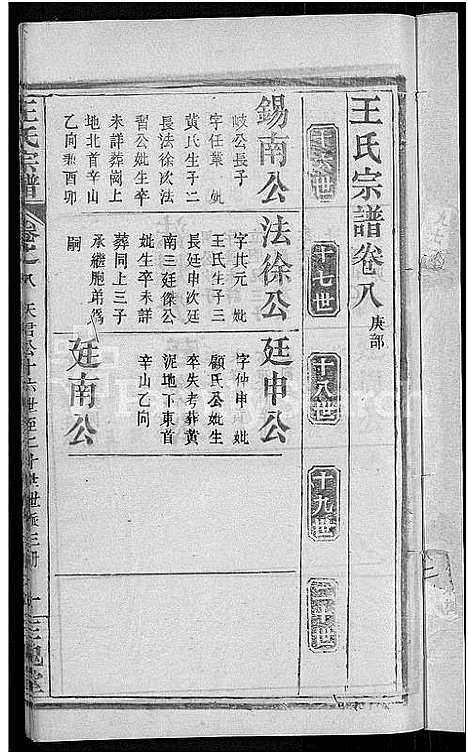 王氏宗譜卷八 庚部
十六世
十七世
十八世
十九世
二十世
錫南公
岐公長子
字任業 妣
黃氏生子二
長法徐次法
習公妣生卒
未詳葬崗上
地北首辛山
乙向兼酉卯
法徐公
字其元 妣
王氏生子三
長廷申次廷
南三廷傑公
妣生卒未詳
葬同上三子
承繼胞弟為
嗣
廷申公
字仲申 妣
顧氏公妣生
卒失考葬黃
泥地下東首
辛山乙向
廷南公
王氏宗譜
卷之八 天君公十六世至二十世世派
三槐堂